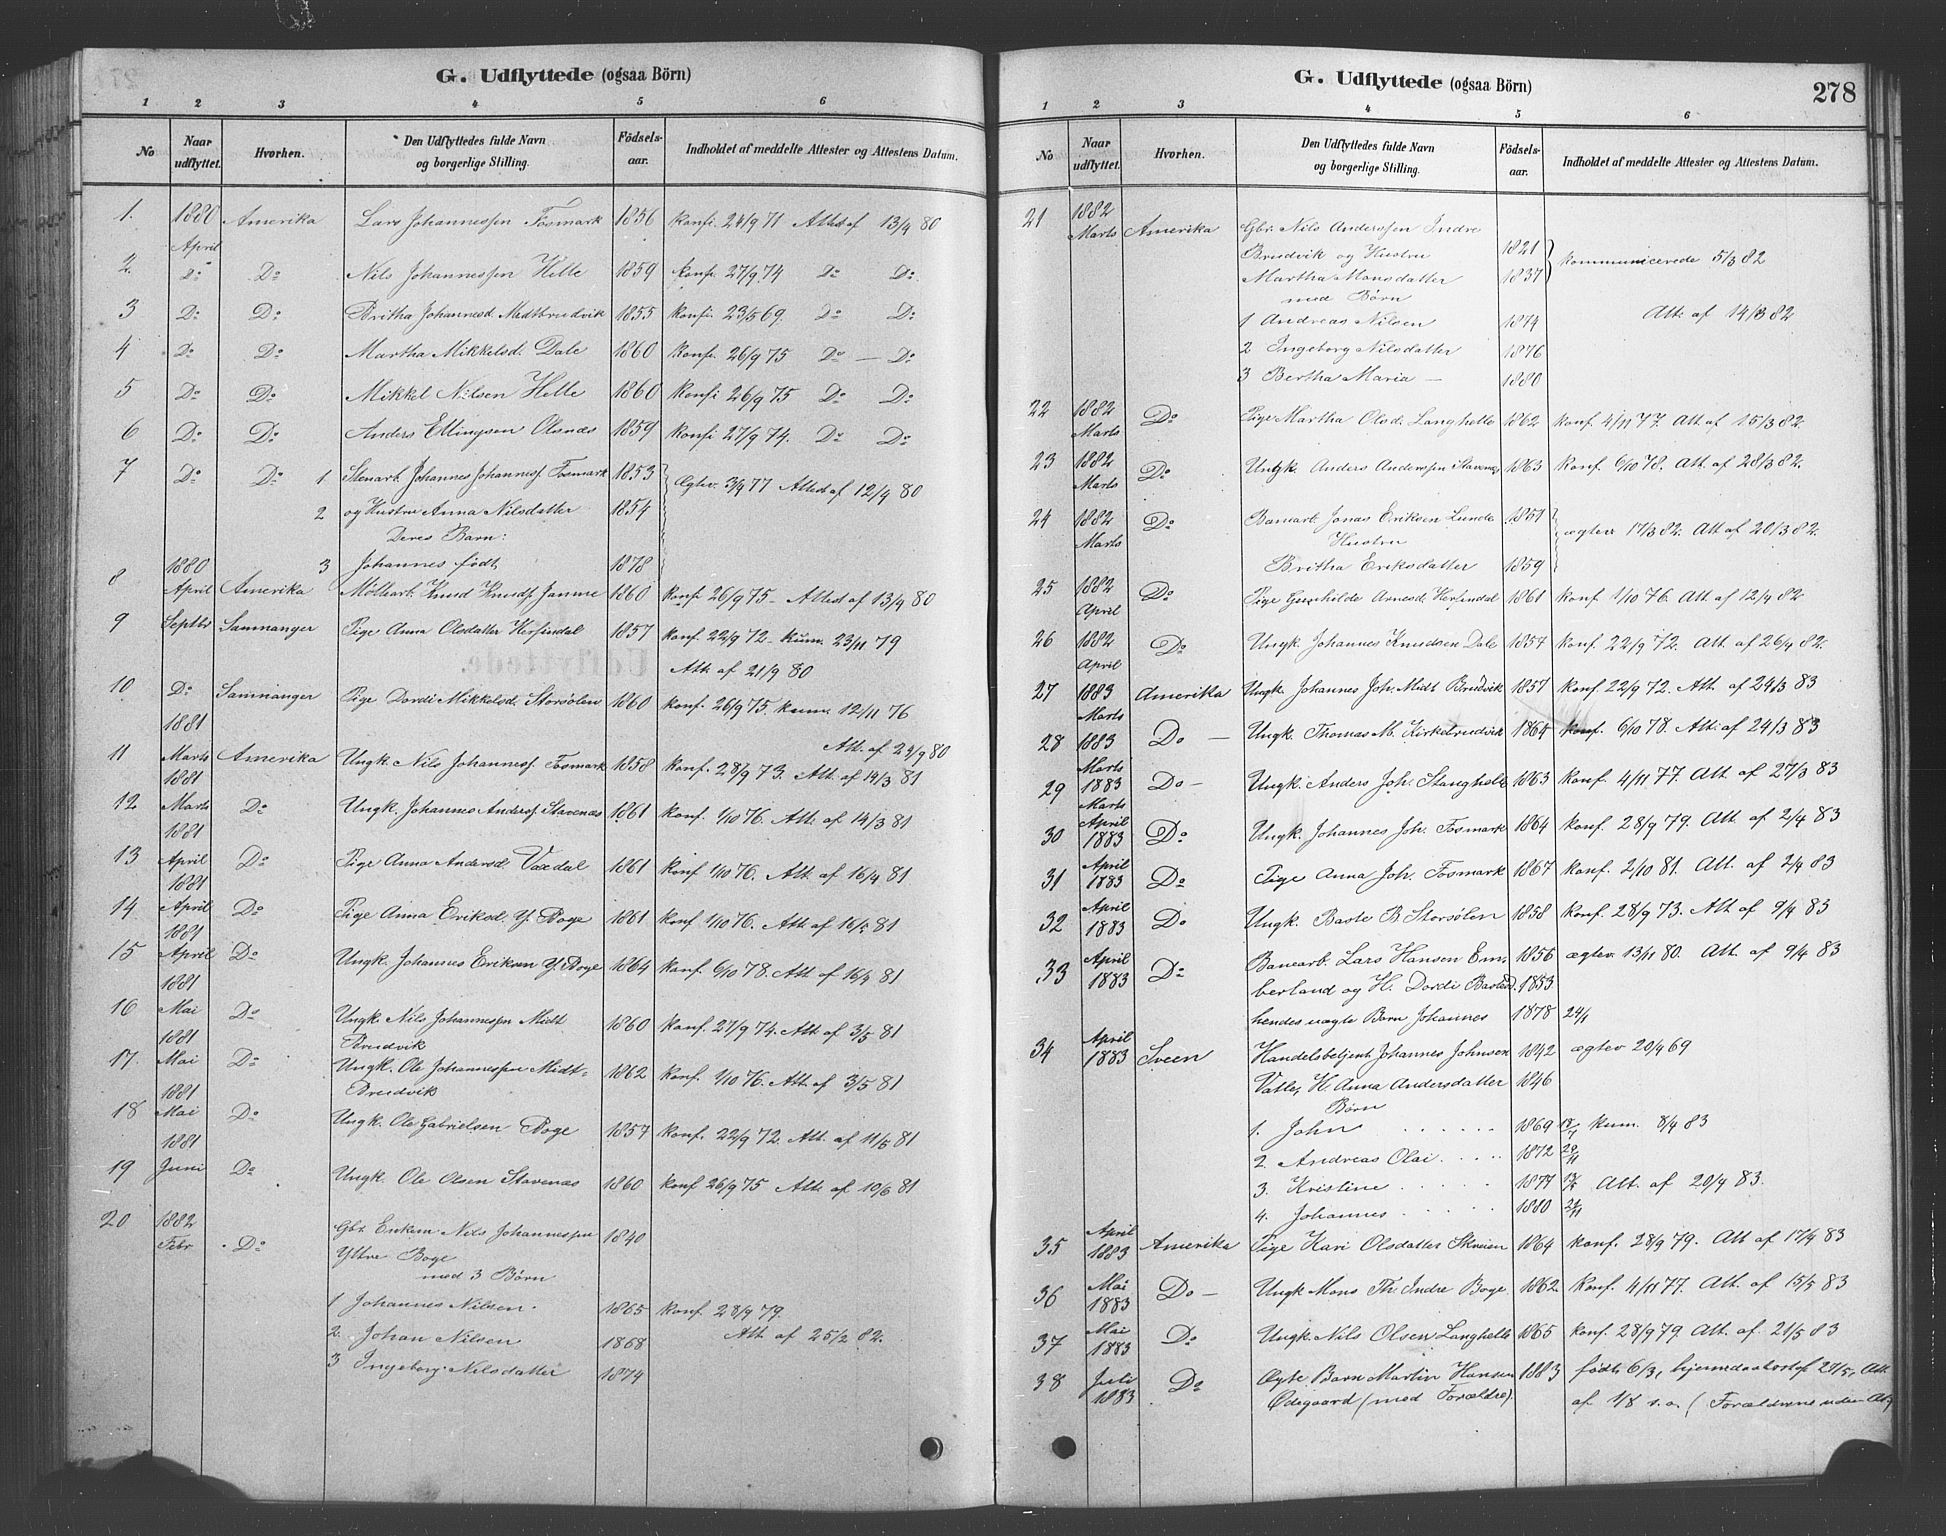 G. Udflyttede (ogsaa Børn)
1 2 3 4 5 6
No Naar udflyttet. Hvorhen. Den Udflyttedes fulde Navn og borgerlige Stilling. Fødsels-aar. Indholdet af meddelte Attester og Attestens Datum.
1. 1880 April Amerika Lars Johannessen Fosmark 1856 Konfi. 24/9 71 Attest af 13/4 80
2. Do Do Nils Johannessen Helle 1859 Konfi. 27/9 74 Do Do
3 Do Do Britha Johannesd. Midtbrudvik 1855 Konfi. 23/5 69. Do Do
4 Do Do Martha Mikkelsd. Dale 1860 Konfi. 26/9 75 Do — Do
5 Do Do Mikkel Nilsen Helle 1860 Konfi 26/9 75 Do Do
6 Do Do Anders Ellingsen Olsnes 1859 Konfi 27/9 74. Do Do
7 Do Do 1 Stenarb. Johannes Johannesf. Fosmark 1853 Ægtev. 3/4 77 Attest af 12/4 80
2 og Hustru Anna Nilsdatter 1854
Deres Barn:
3 Johannes født 1878
8 1880 April Amerika Møllearb. Knud Knudf. Jamne 1860 Konfi 26/9 75 - Attest af 13/4 80
9 Septbr Samnanger Pige Anna Olsdatter Herfindal 1857 Konf. 22/9 72 - Kum. 23/11 79
Att. af 21/9 80
10 Do Samnanger Pige Dordi Mikkelsd. Storsølen 1860 Konf. 26/9 75. Kum. 12/11 76
Att. af 22/9 80
11 1881 Marts Amerika Ungk. Nils Johannesf. Fosmark 1858 Konf. 28/9 73. Att. af 14/3 81
12 1881 Marts Do Ungk. Johannes Andersf. Stavenæs 1861 Konf. 1/10 76. Att. af 14/3 81
13 1881 April Do Pige Anna Andersd. Vaxdal 1861 Konf 1/10 76. Att. af 16/4 81
14 1881 April Do Pige Anna Eriksd. Y. Boge 1861 Konf 1/10 76. Att. af 16/5 81
15 1881 April Do Ungk. Johannes Eriksen Y. Boge 1864 Konf. 6/10 78. Att. af 16/4 81
16 1881 Mai Do Ungk. Nils Johannessen Midt 1860 Konf. 27/9 74. Att. af 3/5 81
Brudvik
17. 1881 Mai Do Ungk. Ole Johannessen Midt- 1862 Konf. 1/10 76. Att. af 3/5 81
Brudvik
18 1881 Mai Do Ungk. Ole Gabrielsen Boge 1857 Konf. 22/9 72. Att. af 11/5 81
19 1881 Juni Do Ungk. Ole Olsen Stavenæs 1860 Konf 26/9 75 Att. af 10/6 81
20 1882 Febr Do Gbr. Enkem Nils Johannessen 1840
Ytre Boge
med 3 Børn
1 Johannes Nilsen. 1865 Konf. 28/9 79.
2. Johan Nilsen 1868 Att. af 25/2 82.
3 Ingeborg Nilsdatter 1874
G. Udflyttede (ogsaa Børn) 278
1 2 3 4 5 6
No Naar udflyttet. Hvorhen. Den Udflyttedes fulde Navn og borgerlige Stilling. Fødsels-aar. Indholdet af meddelte Attester og Attestens Datum.
21 1882 Marts Amerika Gbr. Nils Anderssen Indre
Brudvik og Hustru 1821 Kommunicerede 5/3 82
Martha Monsdatter 1837
med Børn
1 Andreas Nilsen 1874 Att. af 14/3 82
2 Ingeborg Nilsdatter 1876
3 Bertha Maria — 1880
22 1882 Marts Do Pige Martha Olsd. Langhelle 1862 Konf. 4/11 77. Att. af 15/3 82.
23 1882 Marts Do Ungk. Anders Anderssen Stavenes 1863 Konf. 6/10 78. Att. af 28/3 82.
24 1882 Marts Do Banearb. Jonas Eriksen Lunde 1851
Hustru ægtev 17/3 82. Att. af 20/3 82.
Britha Eriksdatter 1859
25 1882 April Do Pige Gunhilde Arnesd. Herfindal 1861 Konf. 1/10 76. Att. af 12/4 82
26 1882 April Do Ungk. Johannes Knudsen Dale 1857 Konf. 22/9 72. Att. af 26/4 82.
27 1883 Marts Amerika Ungk. Johannes Joh. Midt Brudvik 1857 Konf 22/9 72. Att. af 24/3 83
28 1883 Marts Do — Ungk. Thomas M. Kirkebrudvik 1864 Konf. 6/10 78. Att. af 24/3 83
29 1883 Marts Do — Ungk. Anders Joh. Stanghelle 1863 Konf. 4/11 77. Att. af 27/3 83
30 April 1883 Do Ungk. Johannes Joh. Fosmark 1864 Konf. 28/9 79. Att. af 2/4 83
31 April 1883 Do Pige Anna Joh. Fosmark 1867 Konf. 2/10 81. Att. af 2/4 83
32 April 1883 Do Ungk. Baste B. Storsølen 1858 Konf. 28/9 73. Att af 9/4 83
33 April 1883 Do Banearb. Lars Hansen Em- 1856 ægtev. 13/11 80. Att. af 9/4 83
berland og H. Dordi Bastesd. 1853
hendes uægte Barn Johannes 1878 24/1
34 April 1883 Sveen Handelsbetjent Johannes Johnsen 1842 ægtev 20/4 69
Valle, H. Anna Andersdatter 1846
Børn
1. John . . . . . . 1869 Kum. 8/4 83
2. Andreas Olai . . . . 1872
3. Kristine . . . . . 1877 Att. af 20/4 83.
4. Johannes . . . . . 1880
35 April 1883 Amerika Pige Kari Olsdatter Skreien 1864 Konf. 28/9 79. Att af 17/4 83
36 Mai 1883 Do — Ungk Mons Th. Indre Boge. 1862. Konf. 4/11 77. Att. af 15/5 83
37 Mai 1883 Do Ungk. Nils Olsen Langhelle 1865 Konf. 28/9 79. Att. af 21/5 83
38 Juli 1883 Do Ægte Barn Martin Hansen 1883 født 6/3, hjemmedøbt 27/5, Att.
Ødegaard (med Forældre) af 1/8 s. a. (Forældrene uden Att.)